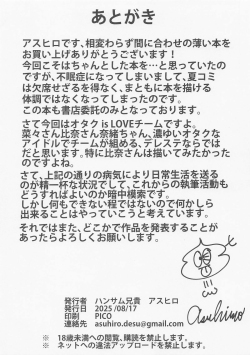 あとがき
アスヒロです、相変わらず間に合わせの薄い本を
お買い上げありがとうございます！
今回こそはちゃんとした本を…と思っていたの
ですが、不眠症になってしまいまして、夏コミ
は欠席せざるを得なく、まともに本を描ける
体調ではなくなってしまったのです。
この本も書店委託のみとなっております。
さて今回はオタク is LOVEチームですよ。
菜々さん比奈さん奈緒ちゃん、濃ゆいオタクな
アイドルでチームが組める、デレステならでは
だと思います。特に比奈さんは描いてみたかった
のですよね。
さて、上記の通りの病気により日常生活を送る
のが精一杯な状況でして、これからの執筆活動も
どうすればよいのか暗中模索です。
しかし何もできない程ではないので何かしら
出来ることはやっていこうと考えています。
それではまた、どこかで作品を発表することが
あったらよろしくお願いします。
発行者　ハンサム兄貴　アスヒロ
発行日　2025/08/17
印刷　PICO
連絡先　asuhiro.desu@gmail.com
asuhiro
※　18歳未満への閲覧、購読を禁止します。
※　ネットへの違法アップロードを禁止します。